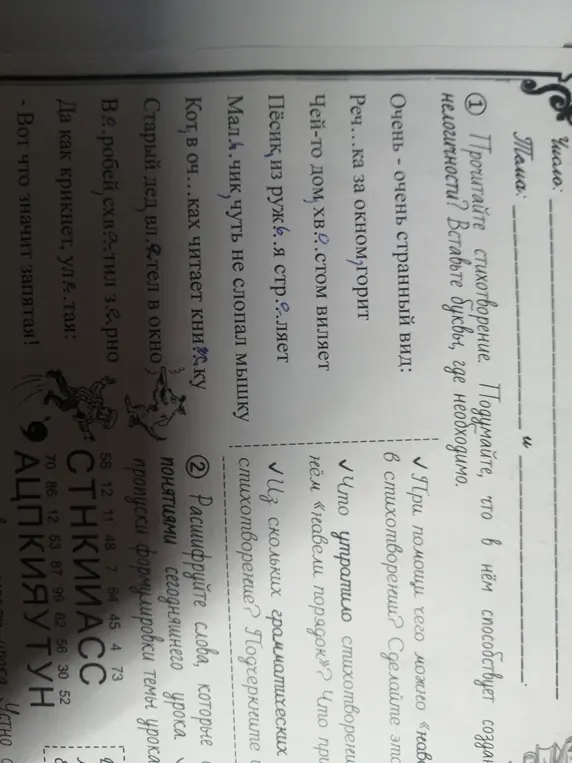 Число:
Тема: " "
① Прочитайте стихотворение. Подумайте, что в нём способствует созда
нелогичности? Вставьте буквы, где необходимо.
Очень - очень странный вид:
Реч...ка за окном, горит
Чей-то дом, хво..стом виляет
Пёсик, из ружь..я стре..ляет
Маль..чик, чуть не слопал мышку
Кот, в оч...ках читает книж..ку
Старый дед, вл..етел в окно,
Во..робей, схва..тил зе..рно
Да как крикнет, уле..тая:
- Вот что значит запятая!
✓ При помощи чего можно «наве
в стихотворении? Сделайте это
✓ Что утратило стихотворени
нём «навели порядок»? Что при
✓ Из скольких грамматических
стихотворение? Подчеркните и
② Расшифруйте слова, которые
понятиями сегодняшнего урока.
пропуски формулировки темы урока
58 12 11 48 7 64 45 4 73
СТНКИИАСС
70 86 12 53 87 99 62 56 30 52
АЦПКИЯУТУН